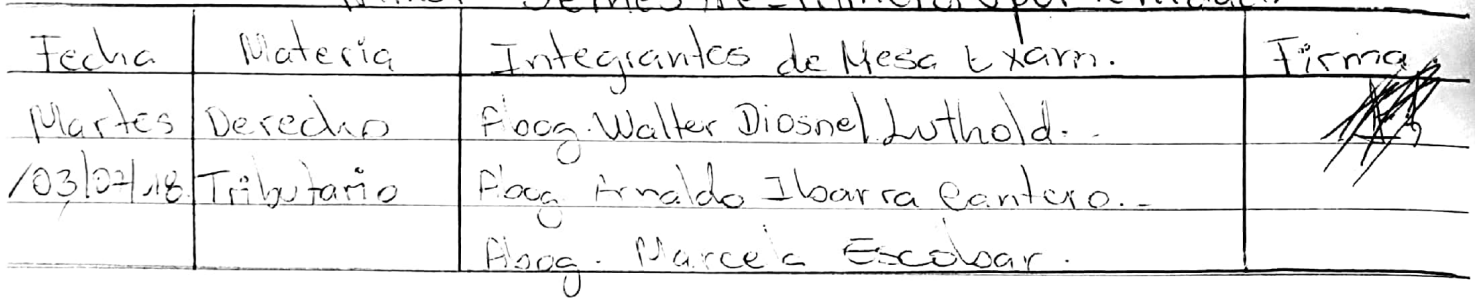 Fecha Materia Integrantes de Mesa Exam. Firma
Martes Derecho Abog. Walter Diosnel Luthold.
/03/07/18 Tributario Abog Arnaldo Ibarra Cantero.-
Abog. Marcela Escobar.